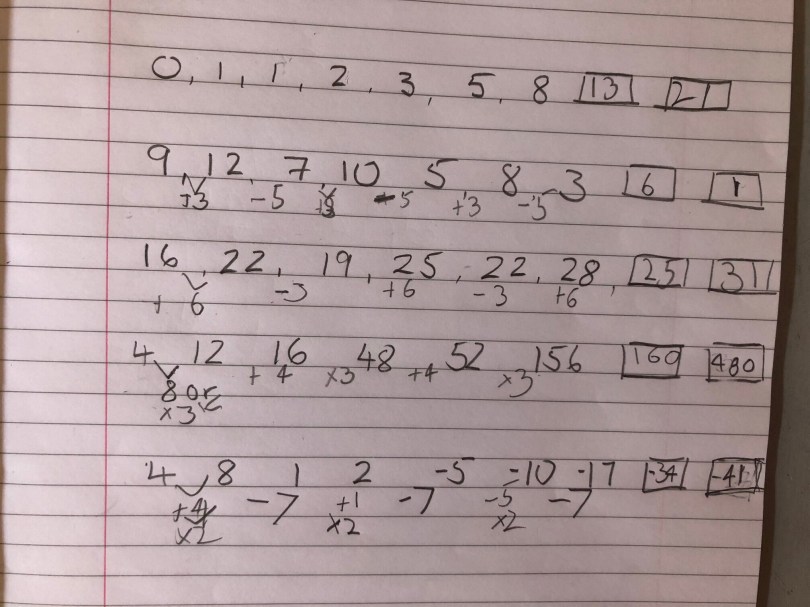 0, 1, 1, 2, 3, 5, 8 13 21
9, 12, 7, 10 5 8 3 6 1
+3 -5 +3 -5 +3 -5
16, 22, 19, 25, 22, 28, 25 31
+6 -3 +6 -3 +6
4 12 16 48 52 156 160 480
8 or +4 ×3 +4 ×3
×3
4 8 1 2 -5 -10 -17 -34 -41
+4 -7 +1 -7 -5 -7
×2 ×2 ×2